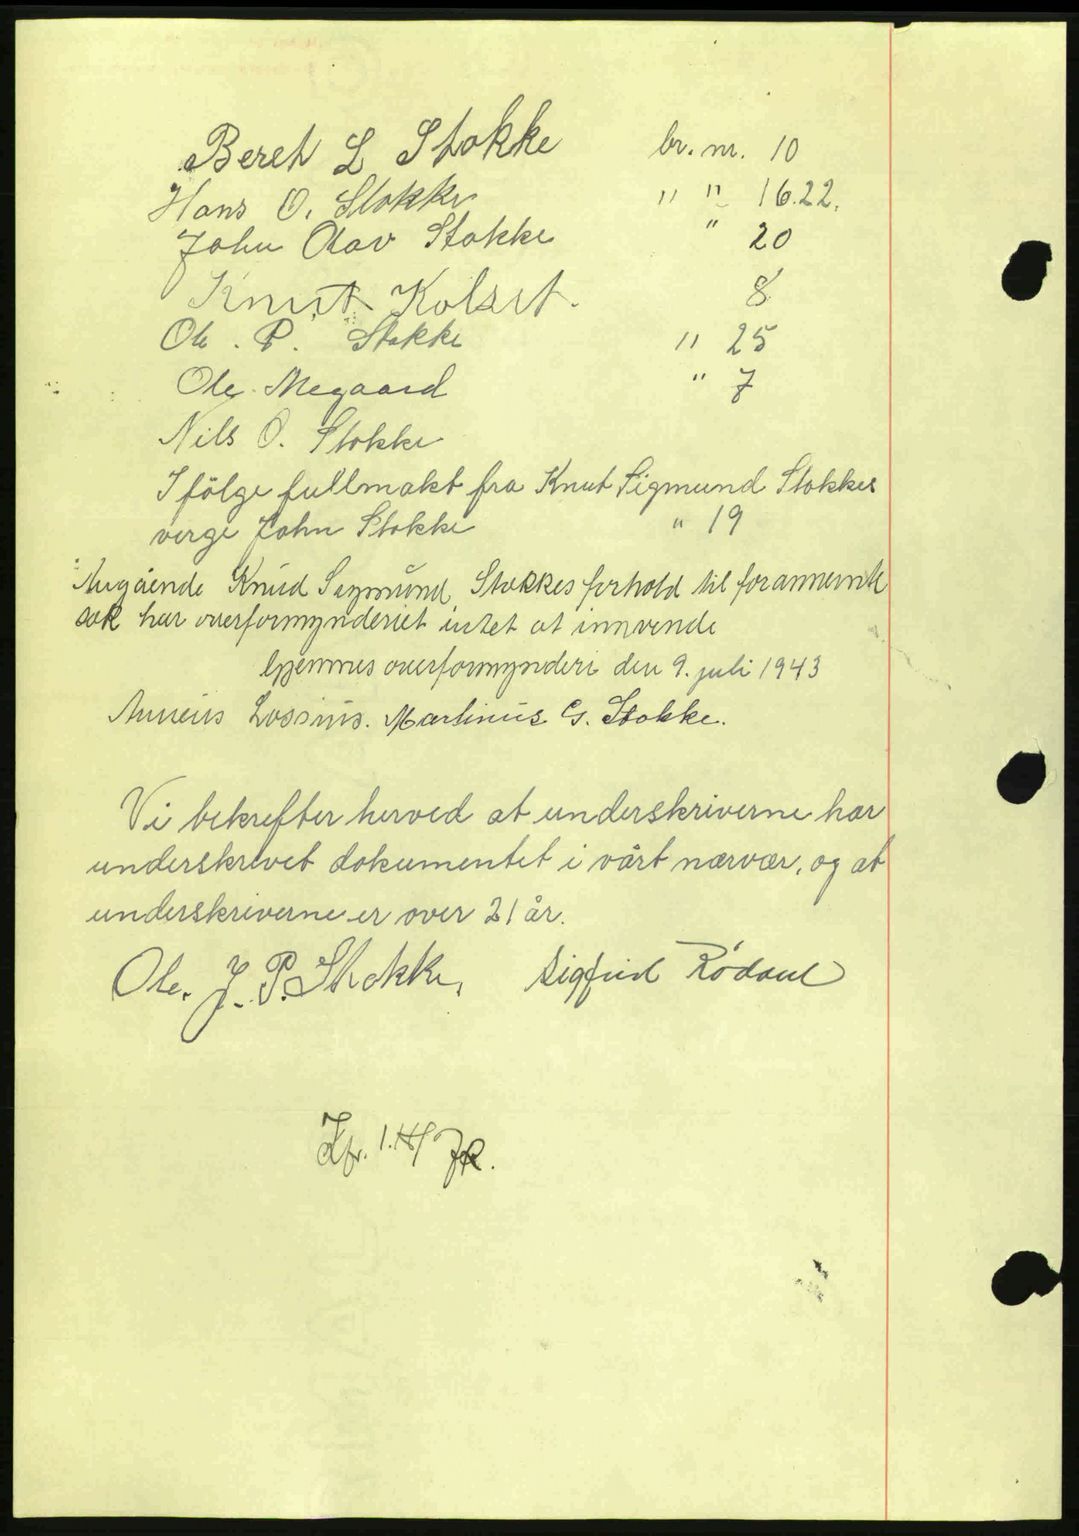 Beret L Stokke br. nr. 10
Hans O. Stokke " " 16.22.
John Olav Stokke " 20
Knut Kolset. 8
Ole . P. Stokke " 25
Ole Megaard " 7
Nils O. Stokke
I fölge fullmakt fra Knut Sigmund Stokkes
verge John Stokke " 19
Angående Knud Sigmund Stokkes forhold til forannevnte
sak har overformynderiet intet at innvende
Hjemnes overformynderi den 9. juli 1943
Anneus Lossius. Martinus G. Stokke.
Vi bekrefter herved at underskriverne har
underskrevet dokumentet i vårt nærvær, og at
underskriverne er over 21 år.
Ole. J. P. Stokke. Sigfrid Rødahl
Kfr.